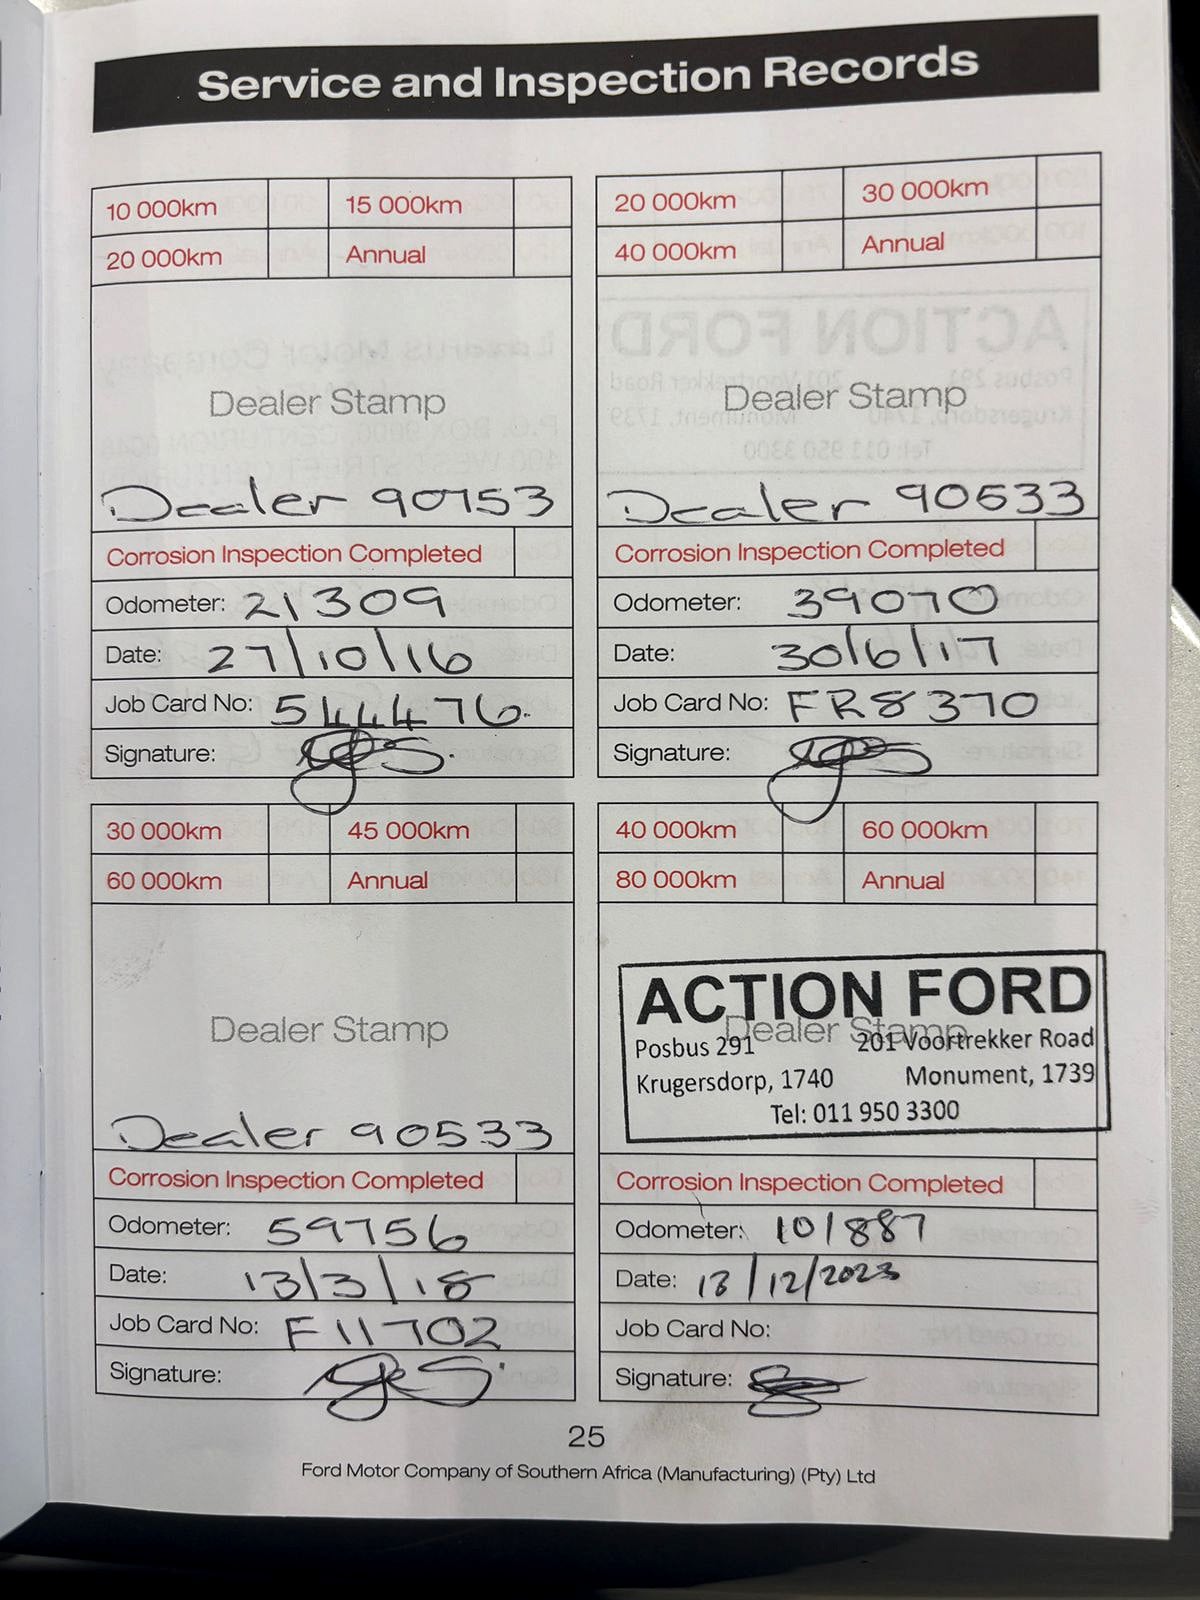 Service and Inspection Records
10 000km 15 000km
20 000km Annual
Dealer Stamp
Dealer 90753
Corrosion Inspection Completed
Odometer: 21309
Date: 27/10/16
Job Card No: 544476.
Signature:
20 000km 30 000km
40 000km Annual
Dealer Stamp
Dealer 90533
Corrosion Inspection Completed
Odometer: 39070
Date: 30/6/17
Job Card No: FR8370
Signature:
30 000km 45 000km
60 000km Annual
Dealer Stamp
Dealer 90533
Corrosion Inspection Completed
Odometer: 59756
Date: 13/3/18
Job Card No: F11702
Signature:
40 000km 60 000km
80 000km Annual
ACTION FORD
Dealer Stamp
Posbus 291 201 Voortrekker Road
Krugersdorp, 1740 Monument, 1739
Tel: 011 950 3300
Corrosion Inspection Completed
Odometer: 101887
Date: 13/12/2023
Job Card No:
Signature:
25
Ford Motor Company of Southern Africa (Manufacturing) (Pty) Ltd